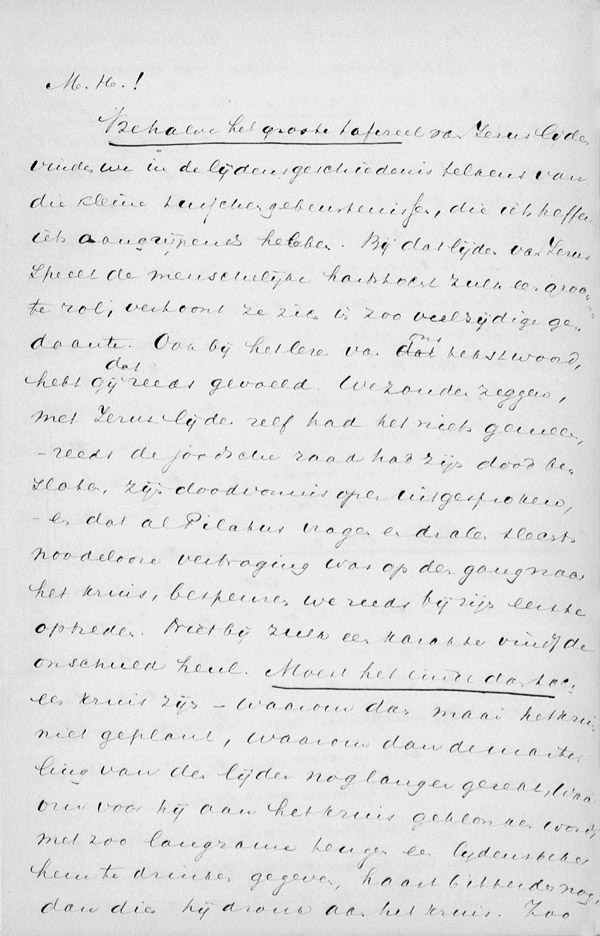 M. H.!
Behalve het groote tafereel van Jezus lijden
vinden we in de lijdensgeschiedenis telkens van
die kleine tusschengebeurtenissen, die iets treffends
iets aangrijpends hebben. Bij dat lijden van Jezus
speelt de menschelijke hartstocht zulk een groo-
te rol, vertoont ze zich in zoo veelzijdige ge-
daante. Ook bij het lezen van ons tekstwoord,
hebt gij dat reeds gevoeld. We zouden zeggen,
met Jezus lijden zelf had het niets gemeen,
- reeds de joodsche raad had zijn dood be-
sloten, zijn doodvonnis open uitgesproken,
- en dat al Pilatus vragen en dralen slechts
noodeloose vertraging was op den gang naar
het kruis, bespeuren we reeds bij zijn eerste
optreden. Niet bij zulk een karakter vindt de
onschuld heul. Moest het einde dan toch
een kruis zijn – waarom dan maar het kruis
niet geplant, waarom dan de marte-
ling van den lijder nog langer gerekt, waar-
om voor hij aan het kruis geklonken wordt
met zoo langzame teugen een lijdensbeker
hem te drinken gegeven, haast bitterder nog
dan die hij dronk aan het kruis. Zoo